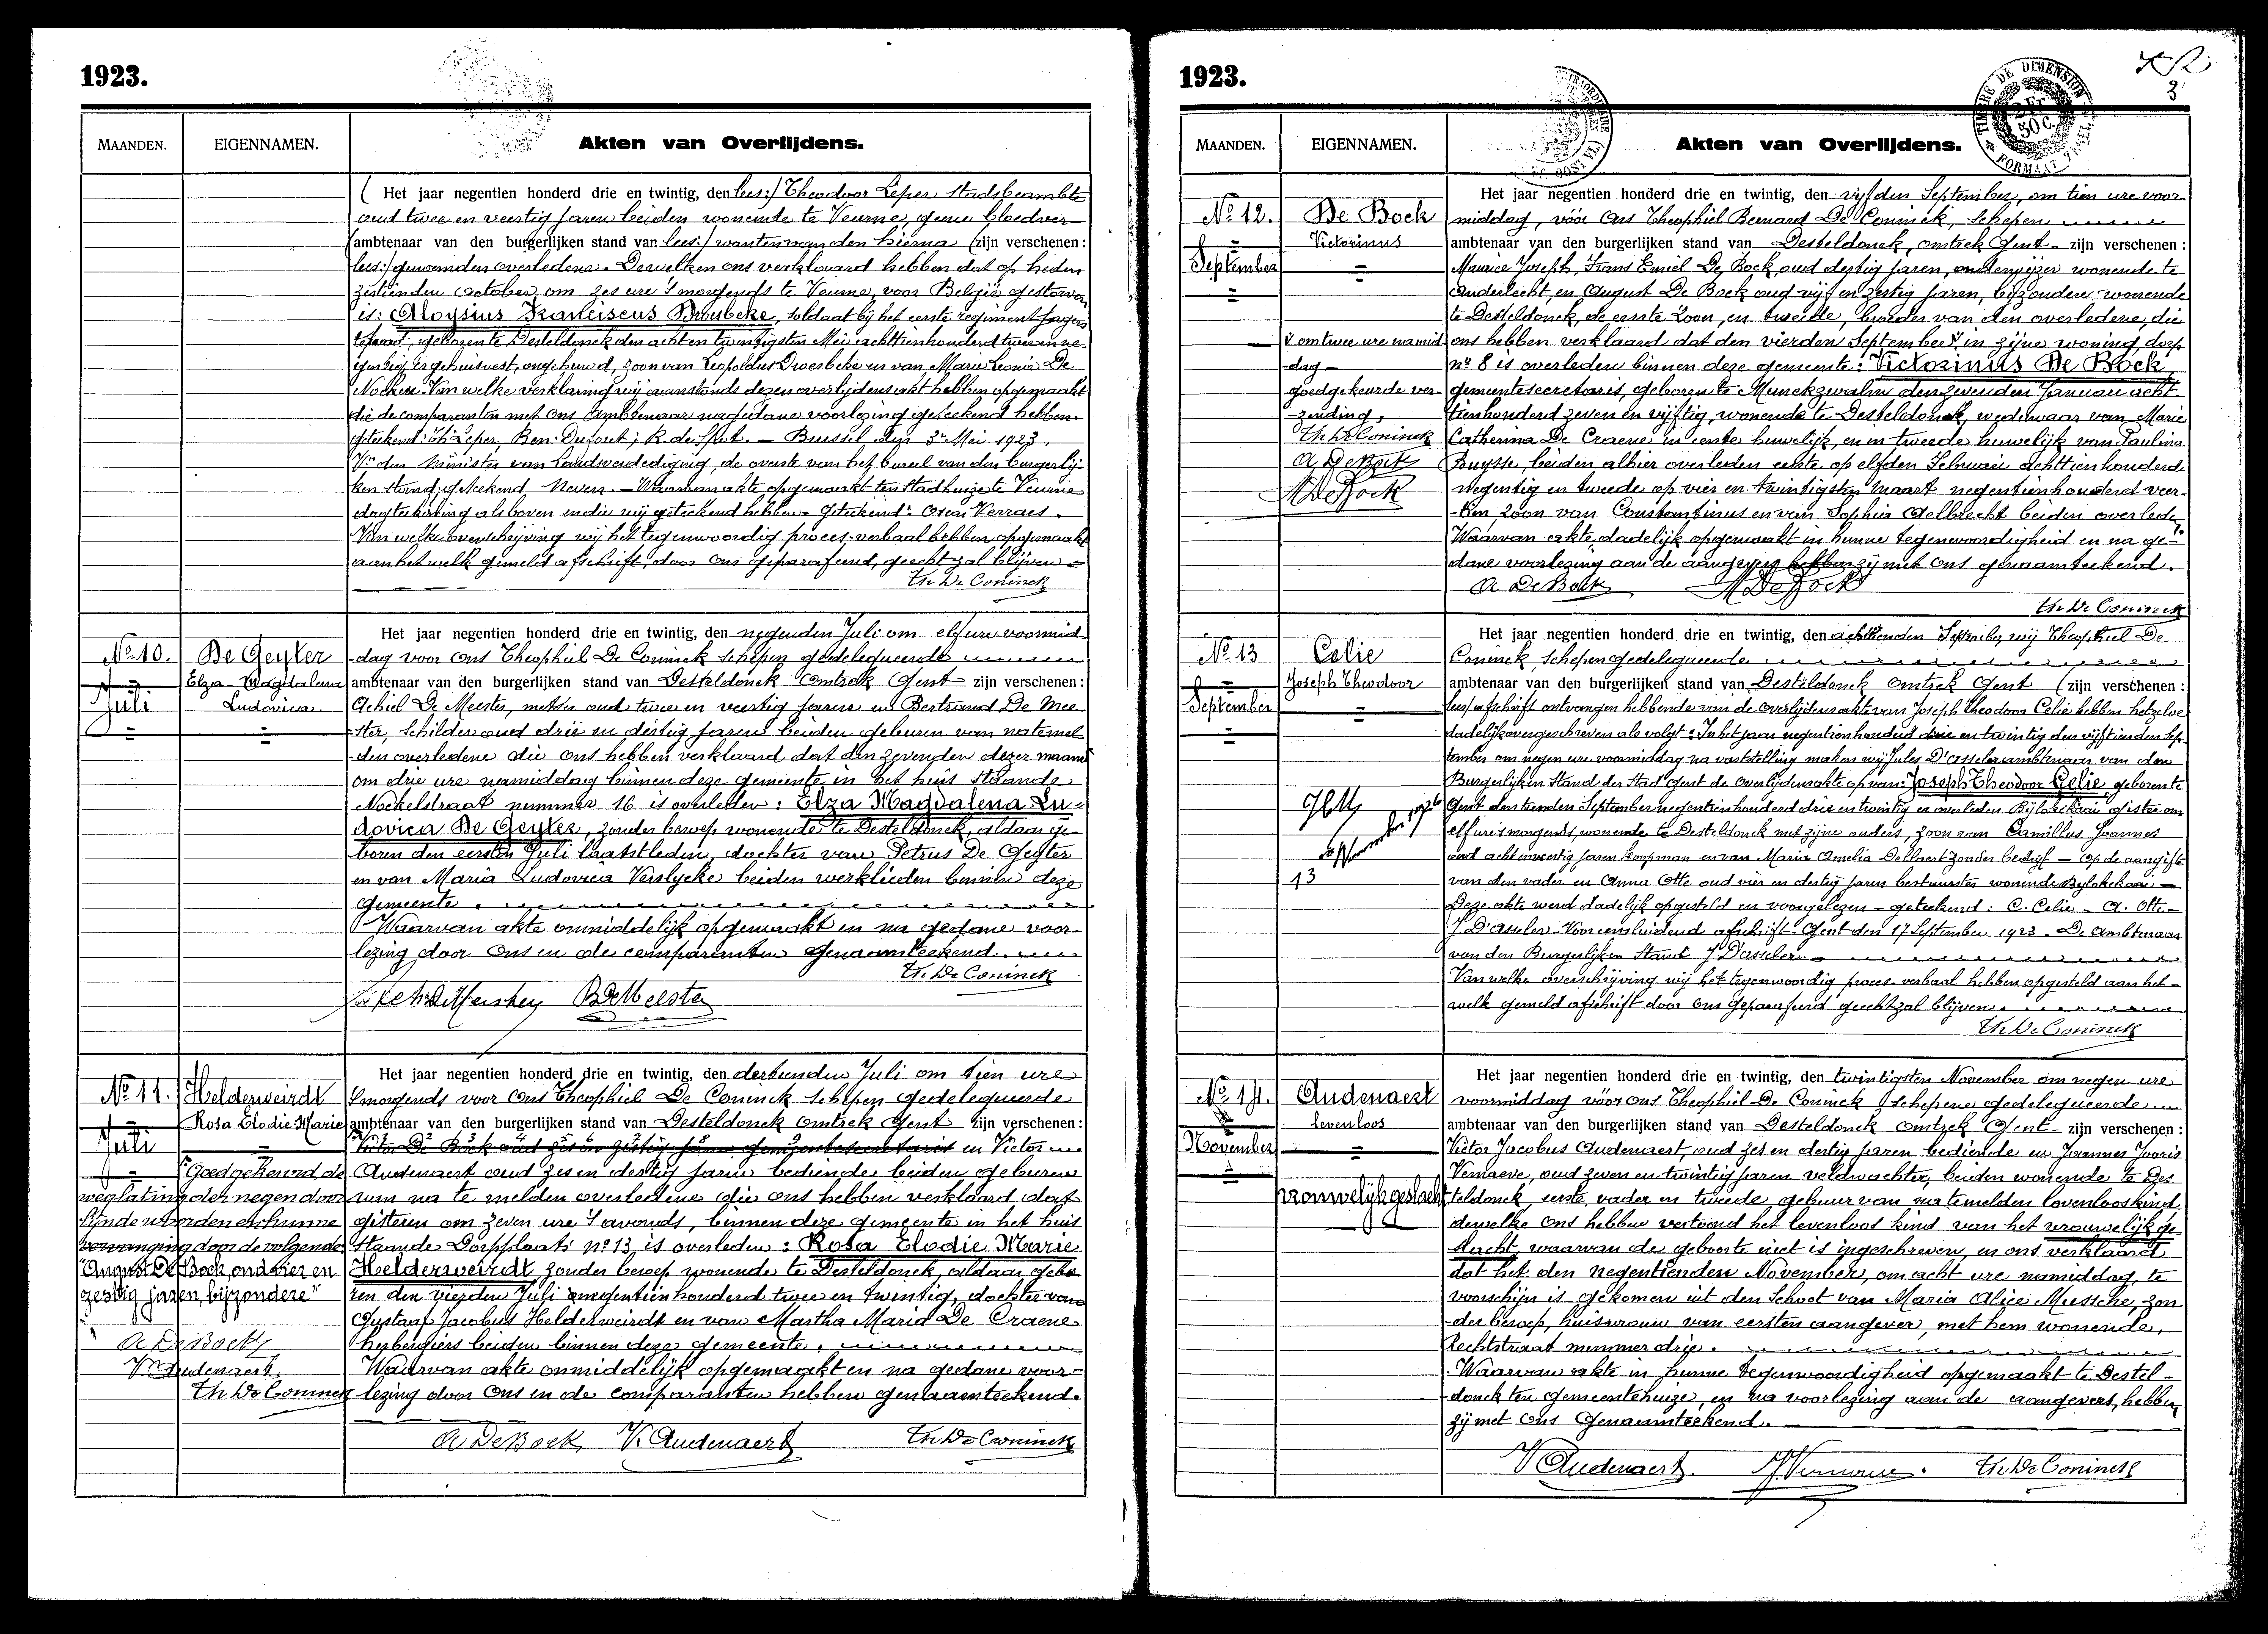 1923.
MAANDEN.
EIGENNAMEN.
Akten van Overlijdens.
( Het jaar negentien honderd drie en twintig, den lees:/ Theodoor Leper stadsbeambte
oud twee en veertig jaren beiden wonende te Veurne, geene bloedver-
(ambtenaar van den burgerlijken stand van lees:/ wanten van den hierna (zijn verschenen:
lees:/ genoemden overledene. Dewelken ons verklaard hebben dat op heden
zestienden October om zes ure 's morgends te Veurne, voor België gestorven
is: Aloysius Franciscus Droesbeke, soldaat bij het eerste regiment jagers
te paard, geboren te Desteldonck den acht en twintigsten Mei achttienhonderd twee en ne-
gentig, er gehuisvest, ongehuwd, zoon van Leopoldus Droesbeke en van Marie Leonie De
Nocker. Van welke verklaring wij aanstonds dezen overlijdensakt hebben opgemaakt
die de comparanten met Ons Ambtenaar na gedane voorlezing geteekend hebben.
geteekend: Th Leper, Ben. ; R. de Spot. — Brussel den 3n Mei 1923.
Vn den Minister van Landsverdediging, de overste van het bureel van den burgerlij-
ken stand; geteekend Neven. — Waarvan akte opgemaakt ten Stadhuize te Veurne
dagteekening als boven en die wij geteekend hebben. Geteekend: Oscar Verraes.
Van welke overschrijving wij het tegenwoordig proces-verbaal hebben opgemaakt
aan hetwelk gemeld afschrift, door Ons geparafeerd, gehecht zal blijven.
Th De Coninck
No 10.
Juli
De Geyter
Elza Magdalena
Ludovica.
Het jaar negentien honderd drie en twintig, den negenden Juli om elf ure voormid-
dag voor Ons Theophiel De Coninck schepen gedelegueerde
ambtenaar van den burgerlijken stand van Desteldonck Omtrek Gent zijn verschenen:
Achiel De Meester, metser oud twee en veertig jaren en Bertrand De Mee-
ster, schilder oud drie en dertig jaren beiden geburen van natemel-
den overledene die Ons hebben verklaard dat den zevenden dezer maand
om drie ure namiddag binnen deze gemeente in het huis staande
Nockelstraat nummer 16 is overleden: Elza Magdalena Lu-
dovica De Geyter, zonder beroep wonende te Desteldonck, aldaar ge-
boren den eersten Juli laatstleden, dochter van Petrus De Geyter
en van Maria Ludovica Verslycke beiden werklieden binnen deze
gemeente.
Waarvan akte onmiddelijk opgemaakt en na gedane voor-
lezing door Ons en de comparanten genaamteekend.
Th. De Coninck
B De Meester
No 11.
Juli
Helderweirdt
Rosa Elodie Marie
"Goedgekeurd, de
weglating der negen door-
lijnde woorden en hunne
vervanging door de volgende:
"August De Bock, oud vier en
zestig jaren, bijzondere"
A De Bock
V. Audenaert.
Th De Coninck
Het jaar negentien honderd drie en twintig, den dertienden Juli om tien ure
's morgends voor Ons Theophiel De Coninck schepen gedelegueerde
ambtenaar van den burgerlijken stand van Desteldonck omtrek Gent zijn verschenen:
Victor De Bock oud zes en zestig jaren gemeentesecretaris en Victor
Audenaert oud zes en dertig jaren bediende beiden geburen
van na te melden overledene die ons hebben verklaard dat
gisteren om zeven ure 's avonds, binnen deze gemeente in het huis
staande Dorpplaats no 13 is overleden: Rosa Elodie Marie
Helderweirdt zonder beroep wonende te Desteldonck, aldaar gebo-
ren den vierden Juli negentienhonderd twee en twintig, dochter van
Gustaaf Jacobus Helderweirdt en van Martha Maria De Craene
herbergiers beiden binnen deze gemeente.
Waarvan akte onmiddelijk opgemaakt en na gedane voor-
lezing door Ons en de comparanten hebben genaamteekend.
A De Bock V. Audenaert Th De Coninck
1923.
3
TIMBRE DE DIMENSION
2 Fr. 50 C.
MAANDEN.
EIGENNAMEN.
Akten van Overlijdens.
No 12.
September
De Bock
Victorinus
V om twee ure namid-
dag —
goedgekeurde ver-
zending,
Th De Coninck
A De Bock
M De Bock
Het jaar negentien honderd drie en twintig, den vijfden September, om tien ure voor-
middag, vóór Ons Theophiel Bernard De Coninck, schepen
ambtenaar van den burgerlijken stand van Desteldonck, omtrek Gent zijn verschenen:
Maurice Joseph, Frans Emiel De Bock, oud dertig jaren, onderwijzer wonende te
Anderlecht, en August De Bock oud vijf en zestig jaren, bijzondere wonende
te Desteldonck, de eerste zoon, en tweede, broeder van den overledene, die
ons hebben verklaard dat den vierden September V in zijne woning dorp
no 8 is overleden binnen deze gemeente: Victorinus De Bock
gemeentesecretaris, geboren te Munckzwalm den zevenden Januari acht-
tienhonderd zeven en vijftig, wonende te Desteldonck, weduwaar van Marie
Catherina De Craene in eerste huwelijk, en in tweede huwelijk van Paulina
Buysse, beiden alhier overleden eerste op elfden Februari achttienhonderd
negentig en tweede op vier en twintigsten Maart negentienhonderd veer-
tien, zoon van Constantinus en van Sophia Aelbrecht beiden overleden.
Waarvan akte, dadelijk opgemaakt in hunne tegenwoordigheid en na ge-
dane voorlezing aan de aangevers hebben zij met Ons genaamteekend.
A De Bock M De Bock
Th De Coninck
No 13
September
Celie
Joseph Theodoor
13
Het jaar negentien honderd drie en twintig, den achttienden September, wij Theophiel De
Coninck, schepen gedelegueerde
ambtenaar van den burgerlijken stand van Desteldonck omtrek Gent (zijn verschenen:
lees:/ afschrift ontvangen hebbende van de overlijdensakte van Joseph Theodoor Celie hebben hetzelve
dadelijk overgeschreven als volgt: In het jaar negentienhonderd drie en twintig den vijftienden Sep-
tember om negen ure voormiddag na vaststelling maken wij Jules D'asseler ambtenaar van den
Burgerlijken Stand der Stad Gent de overlijdensakte op van: Joseph Theodoor Celie, geboren te
Gent den tienden September negentienhonderd drie en twintig er overleden Bijlokekaai gister om
elf ure 's morgends, wonende te Desteldonck met zijne ouders, zoon van Camillus Joannes
oud acht en veertig jaren koopman en van Maria Amelia Dellaert zonder bedrijf — Op de aangifte
van den vader en Anna Otte oud vier en dertig jaren bestuurster wonende Bijlokekaai —
Deze akte werd dadelijk opgesteld en voorgelezen — geteekend: C. Celie — A. Otte —
J. D'asseler. — Voor eensluidend afschrift — Gent den 17 September 1923. De Ambtenaar
van den Burgerlijken Stand J D'asseler.
Van welke overschrijving wij het tegenwoordig proces-verbaal hebben opgesteld aan het-
welk gemeld afschrift door Ons geparafeerd gehecht zal blijven.
Th De Coninck
No 14.
November
Audenaert
levenloos
vrouwelijk geslacht
Het jaar negentien honderd drie en twintig, den twintigsten November om negen ure
voormiddag vóór ons Theophiel De Coninck, schepene gedelegueerde
ambtenaar van den burgerlijken stand van Desteldonck omtrek Gent zijn verschenen:
Victor Jacobus Audenaert, oud zes en dertig jaren bediende en Joannes Jooris
Vernaeve, oud zeven en twintig jaren veldwachter, beiden wonende te Des-
teldonck, eerste, vader en tweede, gebuur van na temelden levenloos kind,
dewelke Ons hebben vertoond het levenloos kind van het vrouwelijk ge-
slacht, waarvan de geboorte niet is ingeschreven, en ons verklaard
dat het den negentienden November, om acht ure namiddag, te
voorschijn is gekomen uit den schoot van Maria Alice Mussche, zon-
der beroep, huisvrouw van eersten aangever, met hem wonende,
Rechtstraat nummer drie.
Waarvan akte in hunne tegenwoordigheid opgemaakt te Destel-
donck ten gemeentehuize, en na voorlezing aan de aangevers, hebben
zij met Ons Genaamteekend.
V Audenaert. Th De Coninck